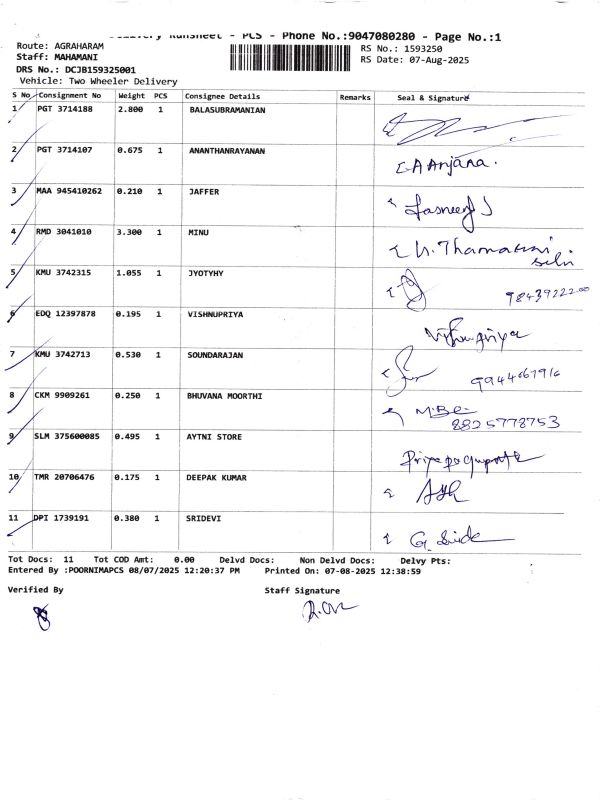 Delivery Runsheet - PCS - Phone No.:9047080280 - Page No.:1
Route: AGRAHARAM
Staff: MAHAMANI
DRS No.: DCJB159325001
Vehicle: Two Wheeler Delivery
RS No.: 1593250
RS Date: 07-Aug-2025
S No Consignment No Weight PCS Consignee Details Remarks Seal & Signature
1 PGT 3714188 2.800 1 BALASUBRAMANIAN
2 PGT 3714107 0.675 1 ANANTHANRAYANAN A Anjana.
3 MAA 945410262 0.210 1 JAFFER
4 RMD 3041010 3.300 1 MINU
5 KMU 3742315 1.055 1 JYOTYHY
6 EDQ 12397878 0.195 1 VISHNUPRIYA Vishnupriya
7 KMU 3742713 0.530 1 SOUNDARAJAN
8 CKM 9909261 0.250 1 BHUVANA MOORTHI
8825778753
9 SLM 375600085 0.495 1 AYTNI STORE
10 TMR 20706476 0.175 1 DEEPAK KUMAR
11 DPI 1739191 0.380 1 SRIDEVI
Tot Docs: 11 Tot COD Amt: 0.00 Delvd Docs: Non Delvd Docs: Delvy Pts:
Entered By :POORNIMAPCS 08/07/2025 12:20:37 PM Printed On: 07-08-2025 12:38:59
Verified By Staff Signature